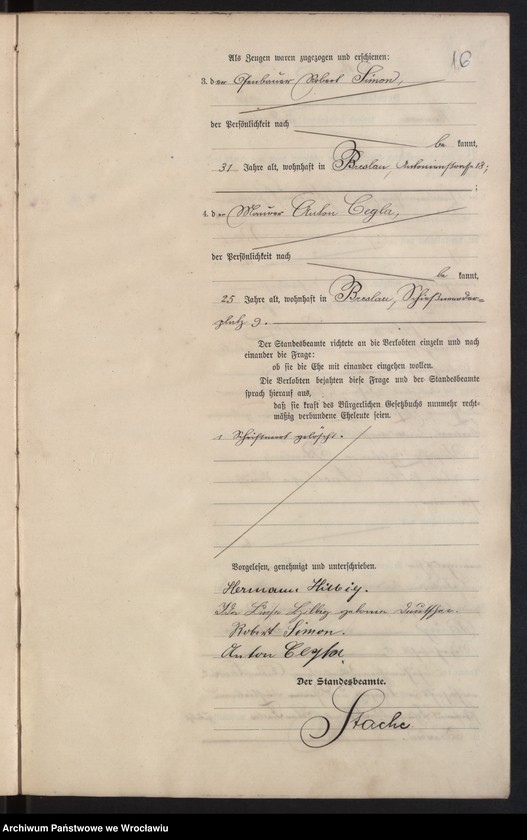 Als Zeugen waren zugezogen und erschienen:
16
3. der Ofenbauer Robert Simon,
der Persönlichkeit nach
be kannt,
31 Jahre alt, wohnhaft in Breslau, Antonienstraße 18;
;
4. der Maurer Anton Cegla,
der Persönlichkeit nach
be kannt,
25 Jahre alt, wohnhaft in Breslau, Schießwerder-
platz 9.
Der Standesbeamte richtete an die Verlobten einzeln und nach
einander die Frage:
ob sie die Ehe mit einander eingehen wollen.
Die Verlobten bejahten diese Frage und der Standesbeamte
sprach hierauf aus,
daß sie kraft des Bürgerlichen Gesetzbuchs nunmehr recht-
mäßig verbundene Eheleute seien.
1 Schriftwort gelöscht.
Vorgelesen, genehmigt und unterschrieben.
Hermann Hilbig.
Ida Hilbig geborene
Robert Simon.
Anton Cegla
Der Standesbeamte.
Stache
Archiwum Państwowe we Wrocławiu